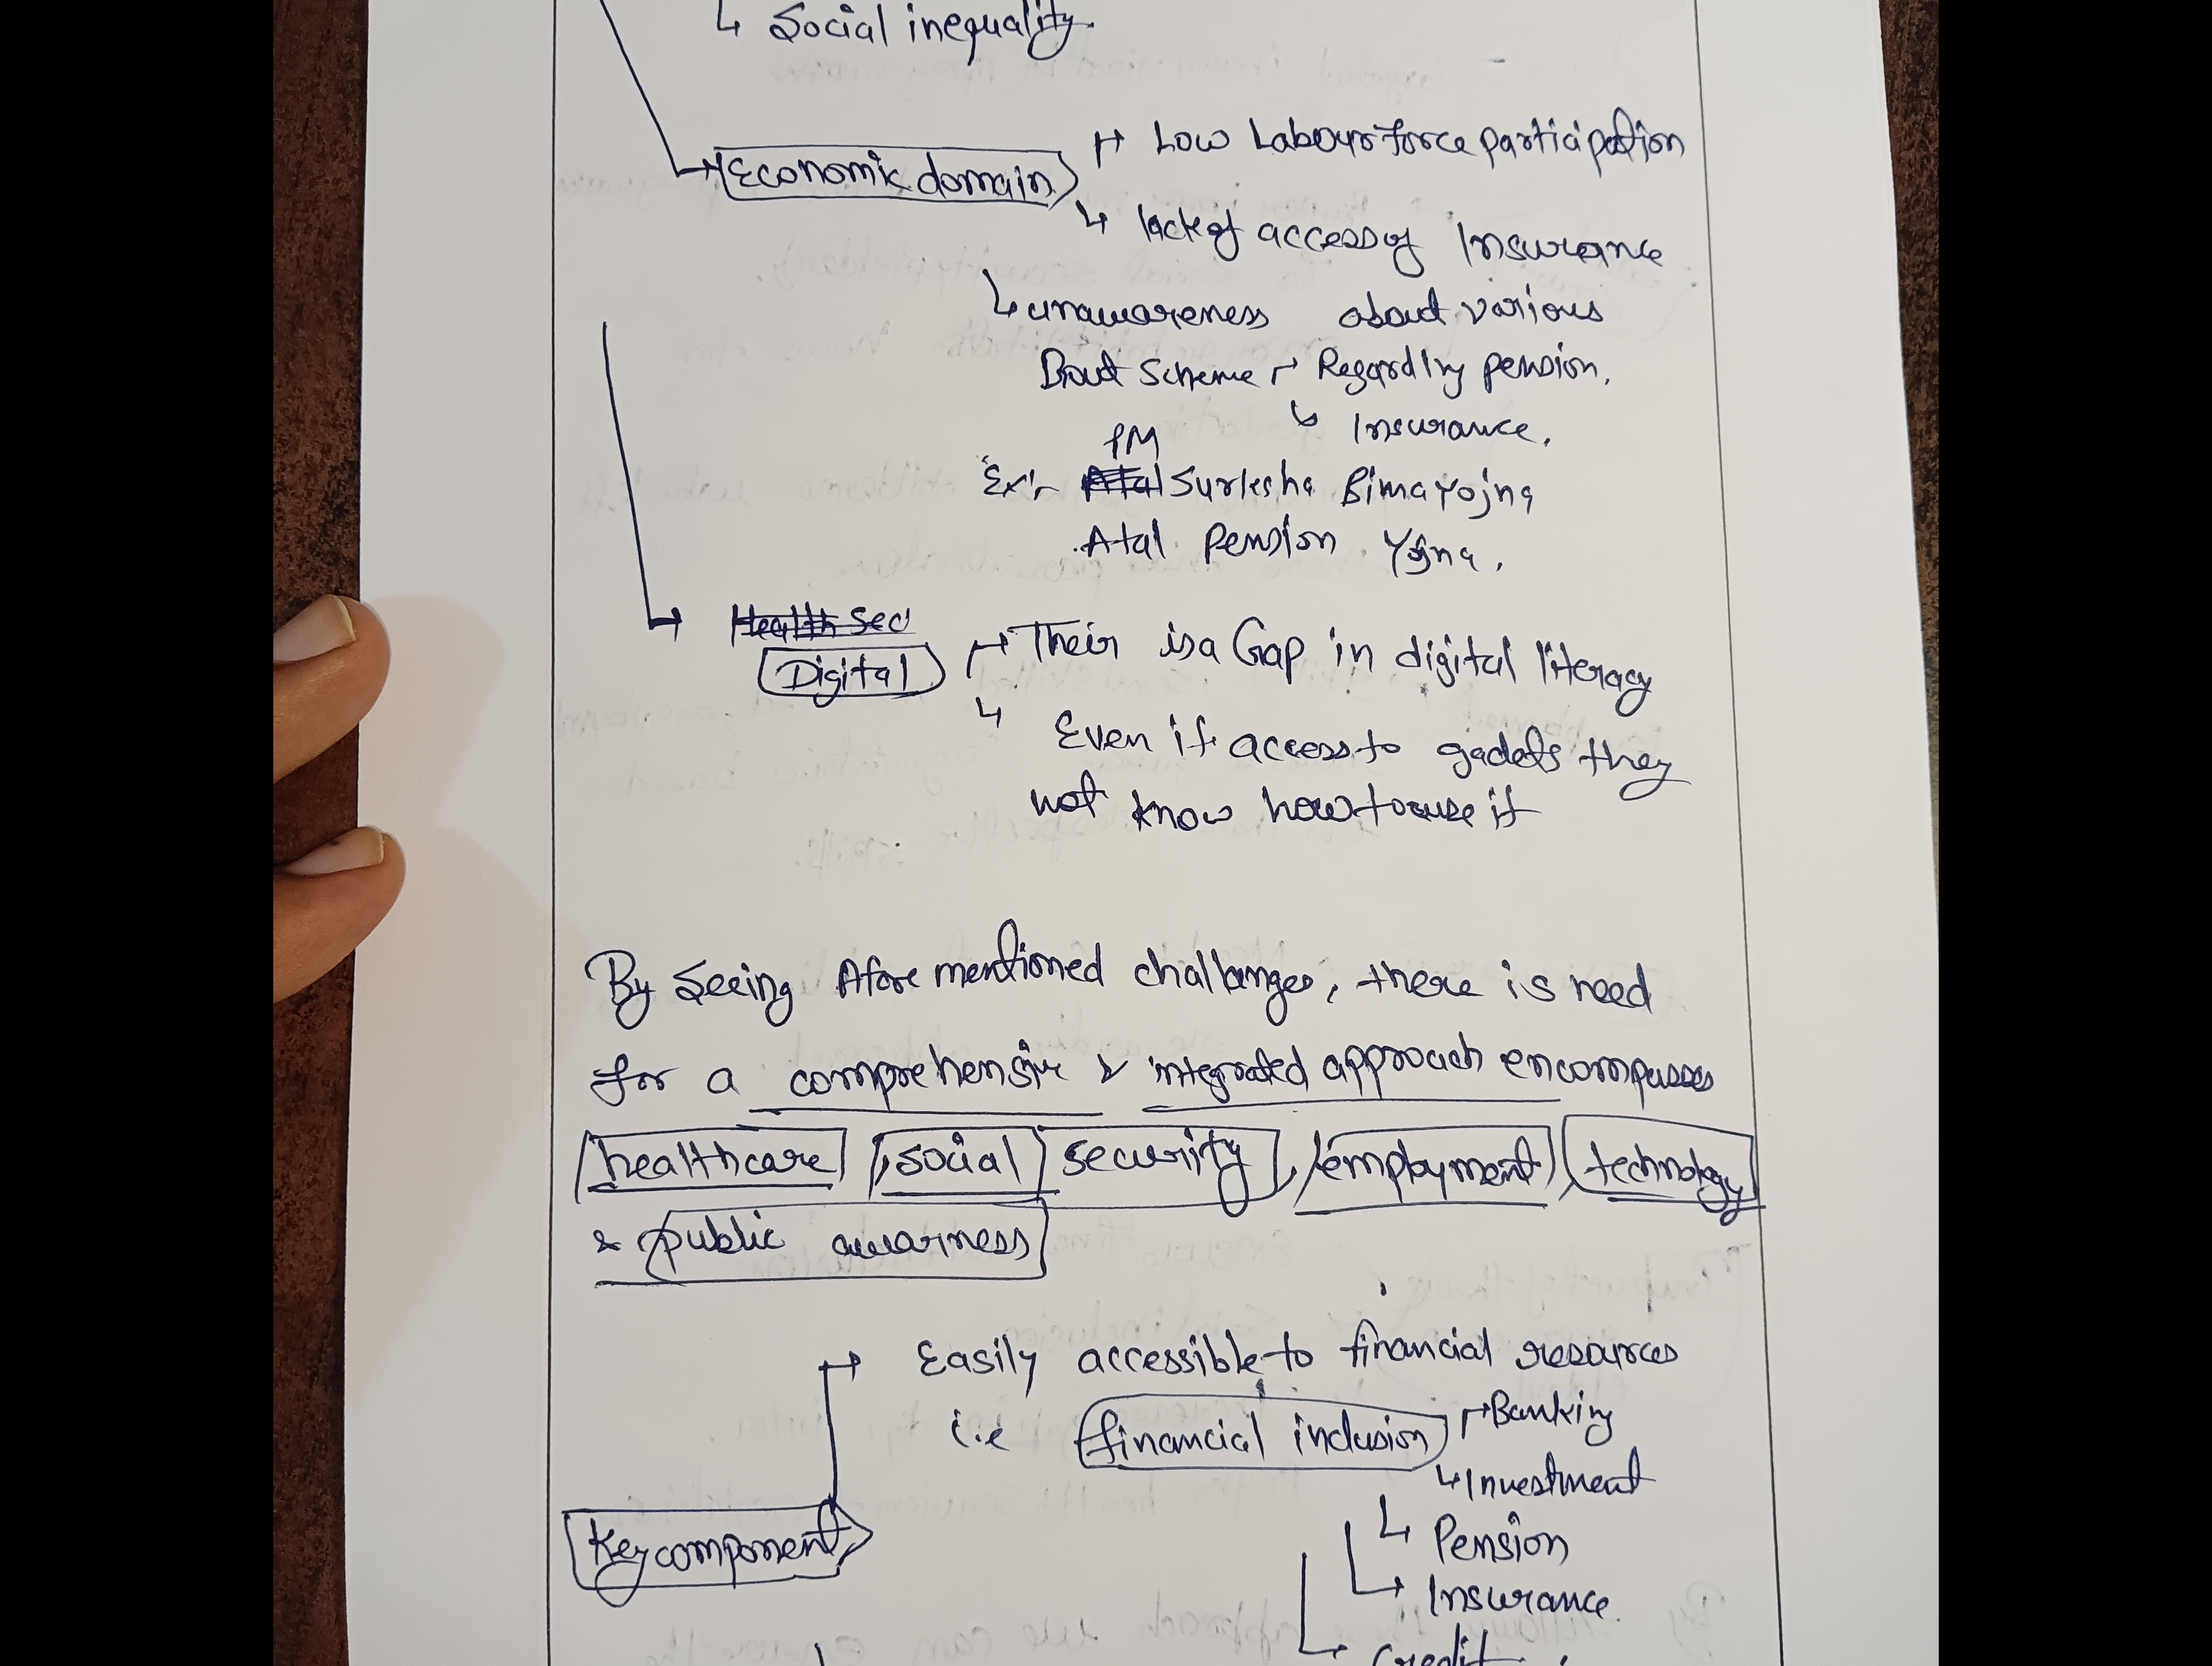 ↳ Social inequality.
→ Low Labour force participation
→ Economic domain
↳ lack of access of Insurance
↳ unawareness about various
Scheme → Regarding pension.
↳ Insurance.
PM
Ex:- Atal Surksha Bima Yojna
Atal Pension Yojna.
→ Health Sec
Digital → Their is a Gap in digital literacy
↳ Even if access to gadets they
not know how to use it
By seeing Afore mentioned challanges, there is need
for a comprehensive & integrated approach encompasses
healthcare, social security, employment, technology
& public awarness
→ Easily accessible to financial resources
i.e financial inclusion → Banking
↳ Investment
↳ Pension
Key component
→ Insurance.
→ Credit.